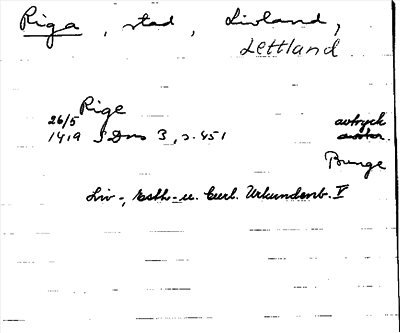 Riga, stad, Livland,
Lettland
Rige
26/5
1419 SDns 3, s. 451 avtryck
Bunge
Liv-, Esth- u. Curl. Urkundenb. V